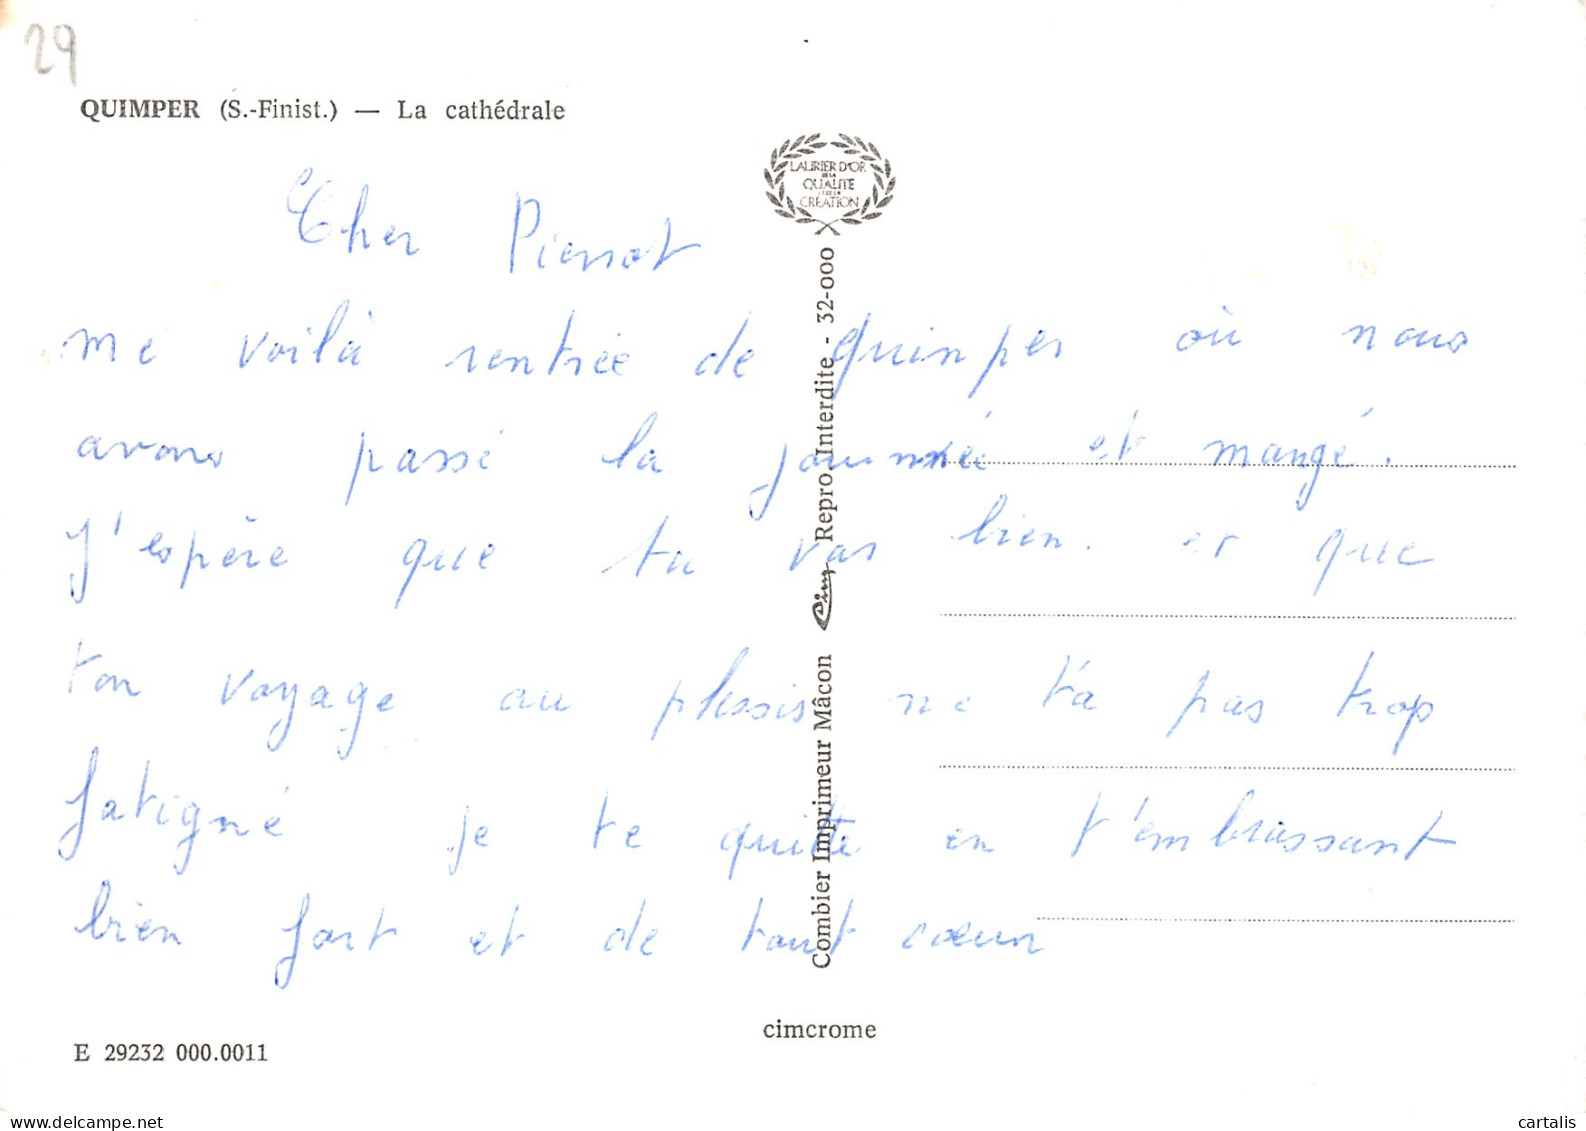 29
QUIMPER (S.-Finist.) — La cathédrale
LAURIER D'OR
DE LA
QUALITE
CREATION
Cher Pierrot
me voilà rentrée de quimper où nous
avons passé la journée et mangé.
J'espère que tu vas bien. et que
ton voyage au plessis ne t'a pas trop
fatigné je te quitte en t'embrassant
bien fort et de tout cœur
Combier Imprimeur Mâcon Cim Repro. Interdite - 32-000
cimcrome
E 29232 000.0011
www.delcampe.net
cartalis